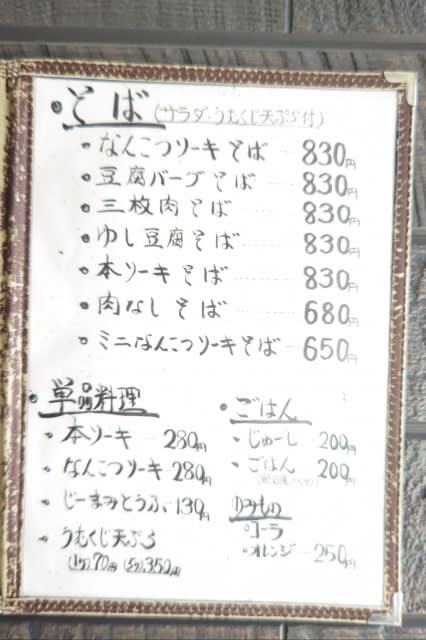 ・そば（サラダ・うむくじ天ぷら付）
・なんこつソーキそば 830円
・豆腐バーブそば 830円
・三枚肉そば 830円
・ゆし豆腐そば 830円
・本ソーキそば 830円
・肉なしそば 680円
・ミニなんこつソーキそば 650円
・単品料理
・本ソーキ 280円
・なんこつソーキ 280円
・じーまみとうふ 130円
・うむくじ天ぷら
(1ケ)70円 (5ケ)350円
・ごはん
・じゅーし 200円
・ごはん 200円
のみもの
・コーラ
・オレンジ 250円